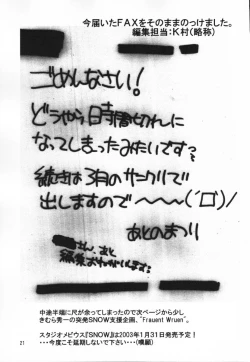 今届いたFAXをそのままのっけました。
編集担当:K村(略称)
ごめんなさい!
どうやら時間切れに
なってしまったみたいですっ
続きは3月のサンクリで
出しますので〜〜〜(´ロ`)/
あとのまつり
さん、あと
中途半端に尺が余ってしまったので次ページから少し
きむら秀一の突発SNOW支援企画、"Frauent Wruen"。
スタジオメビウス『SNOW』は2003年1月31日発売予定!
・・・今度こそ延期しないで下さい・・・(嘆願)
21